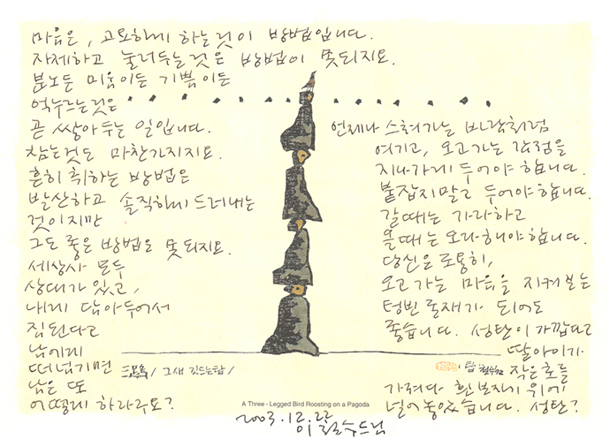 마음은, 고요하게 하는것이 방법입니다.
자제하고 눌러두는것은 방법이 못되지요.
분노든 미움이든 기쁨이든
억누르는것은
곧 쌓아두는 일입니다.
참는것도 마찬가지지요.
흔히 취하는 방법은
발산하고 솔직하게 드러내는
것이지만
그도 좋은 방법은 못되지요.
세상사 모두
상대가 있고,
내게 담아두어서
짐된다고
남에게
떠넘기면
남은 또
어떻게 하라구요?
언제나 스쳐가는 바람처럼
여기고, 오고가는 감정을
지나가게 두어야 합니다.
붙잡지말고 두어야 합니다.
갈때는 가라하고
올때는 오라해야합니다.
당신은 오롯히,
오고가는 마음을 지켜보는
텅빈 존재가 되어도
좋습니다. 성탄이 가깝다고
딸아이가
작은초들
가져다 흰보자기 위에
널어놓았습니다. 성탄?
三足鳥/ 그새 깃드는탑/
탑 철수
A Three - Legged Bird Roosting on a Pagoda
2003.12.22
이철수드림